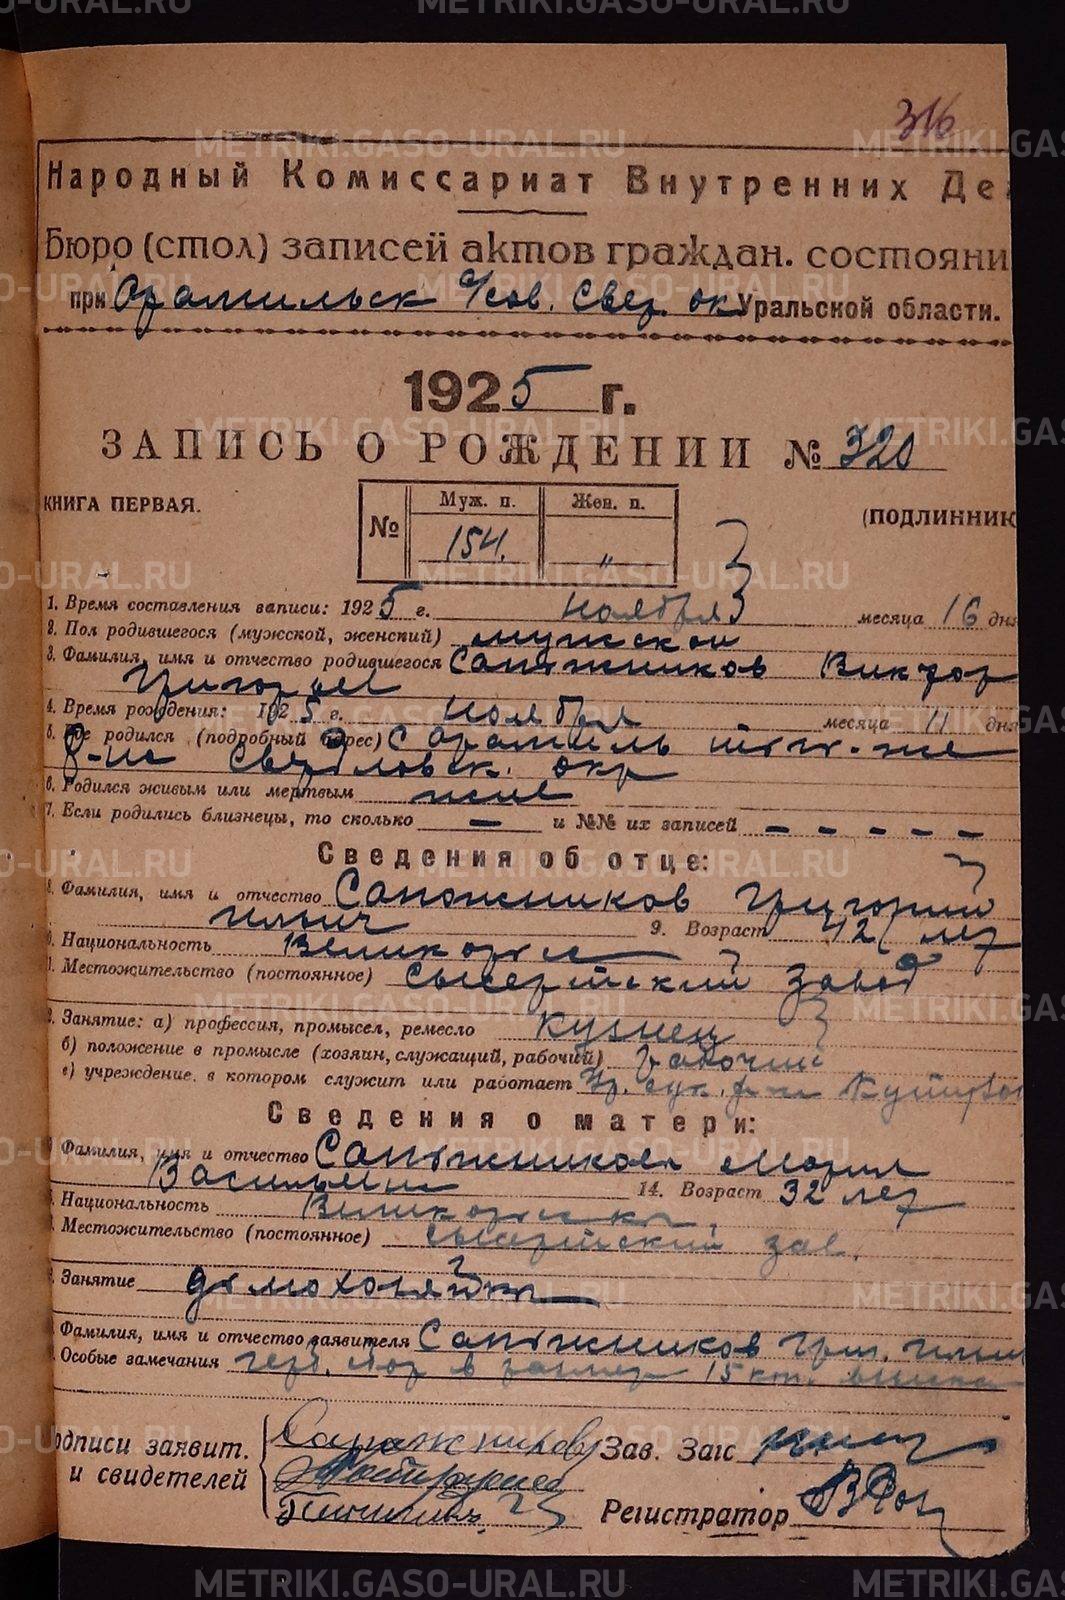 316
Народный Комиссариат Внутренних Де
Бюро (стол) записей актов граждан. состояни
при Арамильск с/сов. Свер. ок. Уральской области.
1925 г.
ЗАПИСЬ О РОЖДЕНИИ № 320
КНИГА ПЕРВАЯ.
№ Муж. п. Жен. п.
154. "
(ПОДЛИННИК
1. Время составления записи: 1925 г. ноября месяца 16 дня
2. Пол родившегося (мужской, женский) мужской
3. Фамилия, имя и отчество родившегося Сапожников Виктор
Григорьев
4. Время рождения: 1925 г. ноября месяца 11 дня
5. Где родился (подробный адрес) С Арамиль того-же
р-на Свердловск. окр
6. Родился живым или мертвым жив
7. Если родились близнецы, то сколько — и №№ их записей — — — — —
Сведения об отце:
8. Фамилия, имя и отчество Сапожников Григорий
Ильич 9. Возраст 42 лет
Национальность Великоросс
1. Местожительство (постоянное) Сысертский завод
2. Занятие: а) профессия, промысел, ремесло кузнец
б) положение в промысле (хозяин, служащий, рабочий) рабочий
в) учреждение, в котором служит или работает сук. ф-ка
Сведения о матери:
Фамилия, имя и отчество Сапожникова Мария
Васильевн 14. Возраст 32 лет
Национальность Великоросска
Местожительство (постоянное) Сысертский зав.
Занятие домохозяйка
Фамилия, имя и отчество заявителя Сапожников Григ. Ильич
Особые замечания в размер 15 коп.
одписи заявит.
и свидетелей
Сапожников
Зав. Загс
Регистратор
METRIKI.GASO-URAL.RU